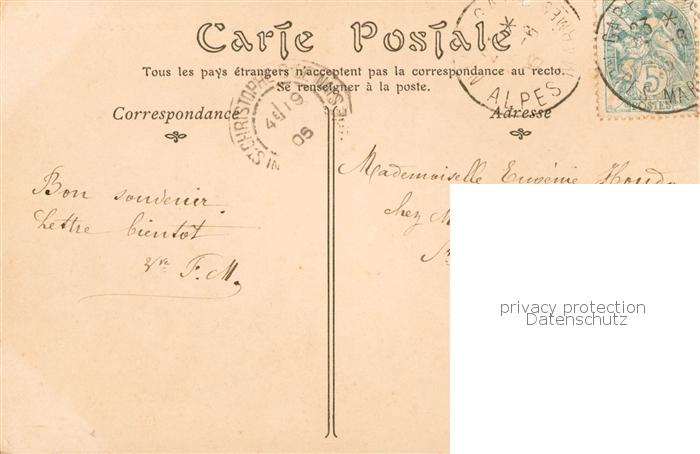 Carte Postale
Tous les pays étrangers n'acceptent pas la correspondance au recto.
Se renseigner à la poste.
Correspondance
Adresse
Mademoiselle Eugénie
chez M
Bon souvenir
Lettre bientot
Vve F. M.
ST CHRISTOPHE
4E/19
06
ALPES
GARE
23
5c
POSTES
MAR
privacy protection
Datenschutz